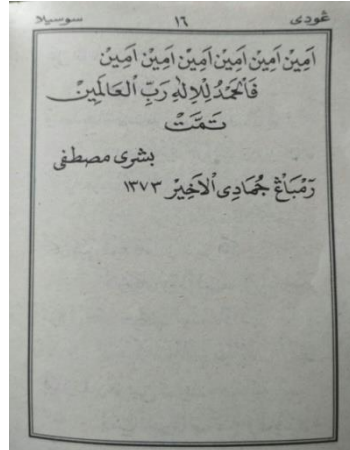 ڠودي ١٦ سوسيلا
اَمِيْنَ اَمِيْنَ اَمِيْنَ اَمِيْنَ اَمِيْنَ اَمِيْنَ
فَالْحَمْدُ لِلْاِلٰهِ رَبِّ الْعَالَمِيْنَ
تَمَّتْ
بشرى مصطفى
رَمْبَاڠْ جُمَادِى الْاَخِيْر ١٣٧٣